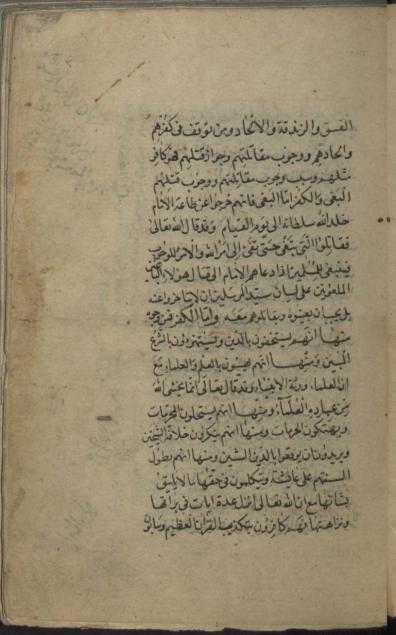 الفسق والزندقة والالحاد ومن توقف في كفرهم
والحادهم ووجوب مقاتلتهم وجواز قتلهم فهو كافر
مثلهم وسبب وجوب مقاتلتهم ووجوب قتلهم
البغي والكفر اما البغي فانهم خرجوا عن طاعة الامام
خلد الله سلطانه الى يوم القيام وقد قال الله تعالى
فقاتلوا التي تبغي حتى تفيء الى امر الله والامر للوجوب
فينبغي للمسلمين اذا دعاهم الامام الى قتال هؤلاء الباغين
الملعونين على لسان سيد المرسلين ان لا يتاخروا عنه
بل يجب ان يعينوه ويقاتلوهم معه واما الكفر فمن وجوه
منها انهم يستخفون بالدين ويستهزءون بالشرع
المبين ومنها انهم يهينون العلم والعلماء مع
ان العلماء ورثة الانبياء وقد قال تعالى انما يخشى الله
من عباده العلماء ومنها انهم يستحلون المحرمات
ويهتكون الحرمات ومنها انهم ينكرون خلافة الشيخين
ويريدون ان يوقعوا بالدين الشين ومنها انهم يطول
السنتهم على عائشة ويتكلمون في حقها ما لا يليق
بشانها مع ان الله تعالى انزل عدة ايات في براتها
ونزاهتها فهم كافرون بتكذيب القران العظيم وسابون